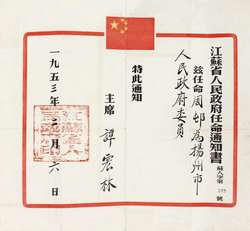 江蘇省人民政府任命通知書
蘇人字第 號
茲任命周邨為揚州市
人民政府委員
特此通知
主席 譚震林
一九五三年二月六日